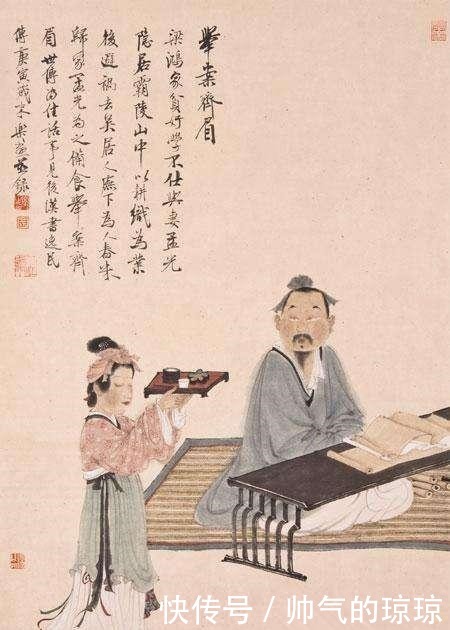 舉案齊眉
梁鴻家貧好學不仕與妻孟光
隱居霸陵山中以耕織為業
後避禍去吳居人廡下為人舂米
歸家孟光為之備食舉案齊
眉世傳為佳話事見後漢書逸民
傳庚寅歲末樂
快传号 / 帅气的琼琼